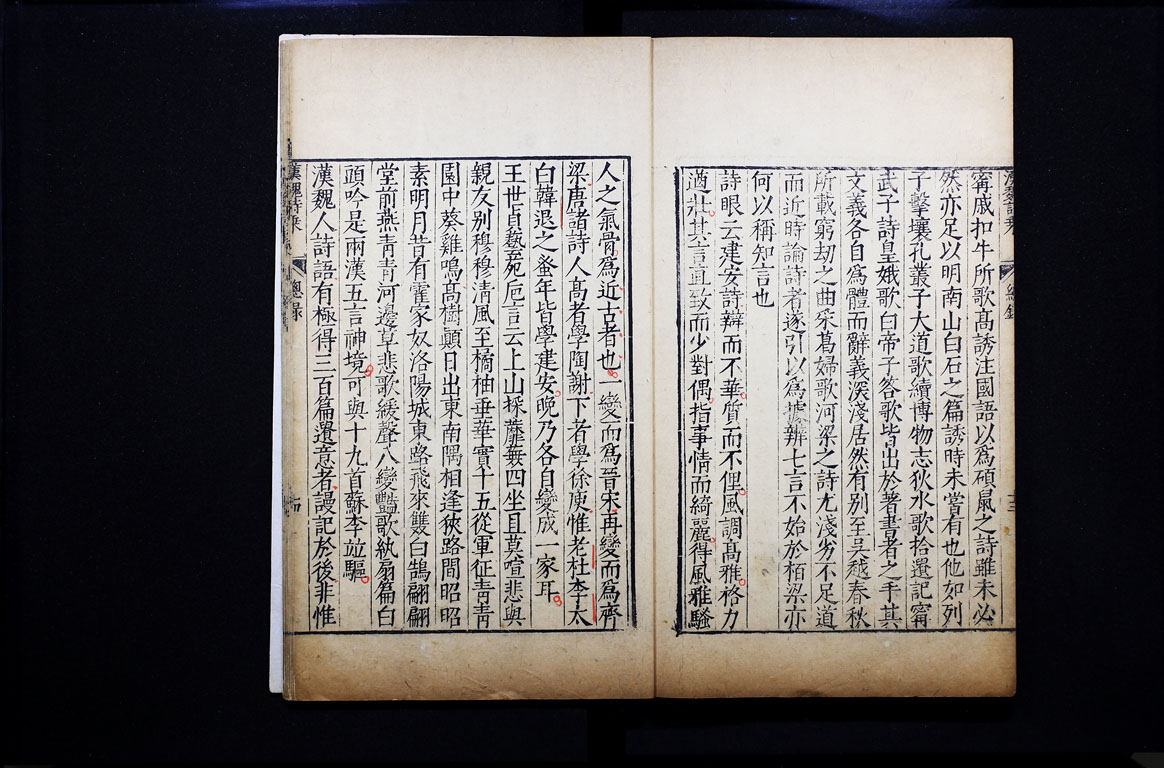 甯戚扣牛所歌高誘注國語以爲碩鼠之詩雖未必
然亦足以明南山白石之篇誘時未嘗有也他如列
子擊壤孔叢子大道歌續博物志狄水歌拾遺記甯
武子詩皇娥歌白帝子答歌皆出於著書者之手其
文義各自爲體而辭義深淺居然有別至吳越春秋
所載窮劫之曲采葛婦歌河梁之詩尤淺劣不足道
而近時論詩者遂引以爲據辨七言不始於栢梁亦
何以稱知言也
詩眼云建安詩辯而不華質而不俚風調高雅格力
遒壯其言直致而少對偶指事情而綺麗得風雅騷
人之氣骨爲近古者也一變而爲晉宋再變而爲齊
梁唐諸詩人高者學陶謝下者學徐庾惟老杜李太
白韓退之蚤年皆學建安晚乃各自變成一家耳
王世貞藝苑巵言云上山採蘼蕪四坐且莫諠悲與
親友別穆穆清風至橘柚垂華實十五從軍征青青
園中葵雞鳴高樹顛日出東南隅相逢狹路間昭昭
素明月昔有霍家奴洛陽城東路飛來雙白鵠翩翩
堂前燕青青河邊草悲歌緩聲八變豔歌紈扇篇白
頭吟是兩漢五言神境可與十九首蘇李竝驅
漢魏人詩語有極得三百篇遺意者謾記於後非惟
漢魏詩乘
總錄